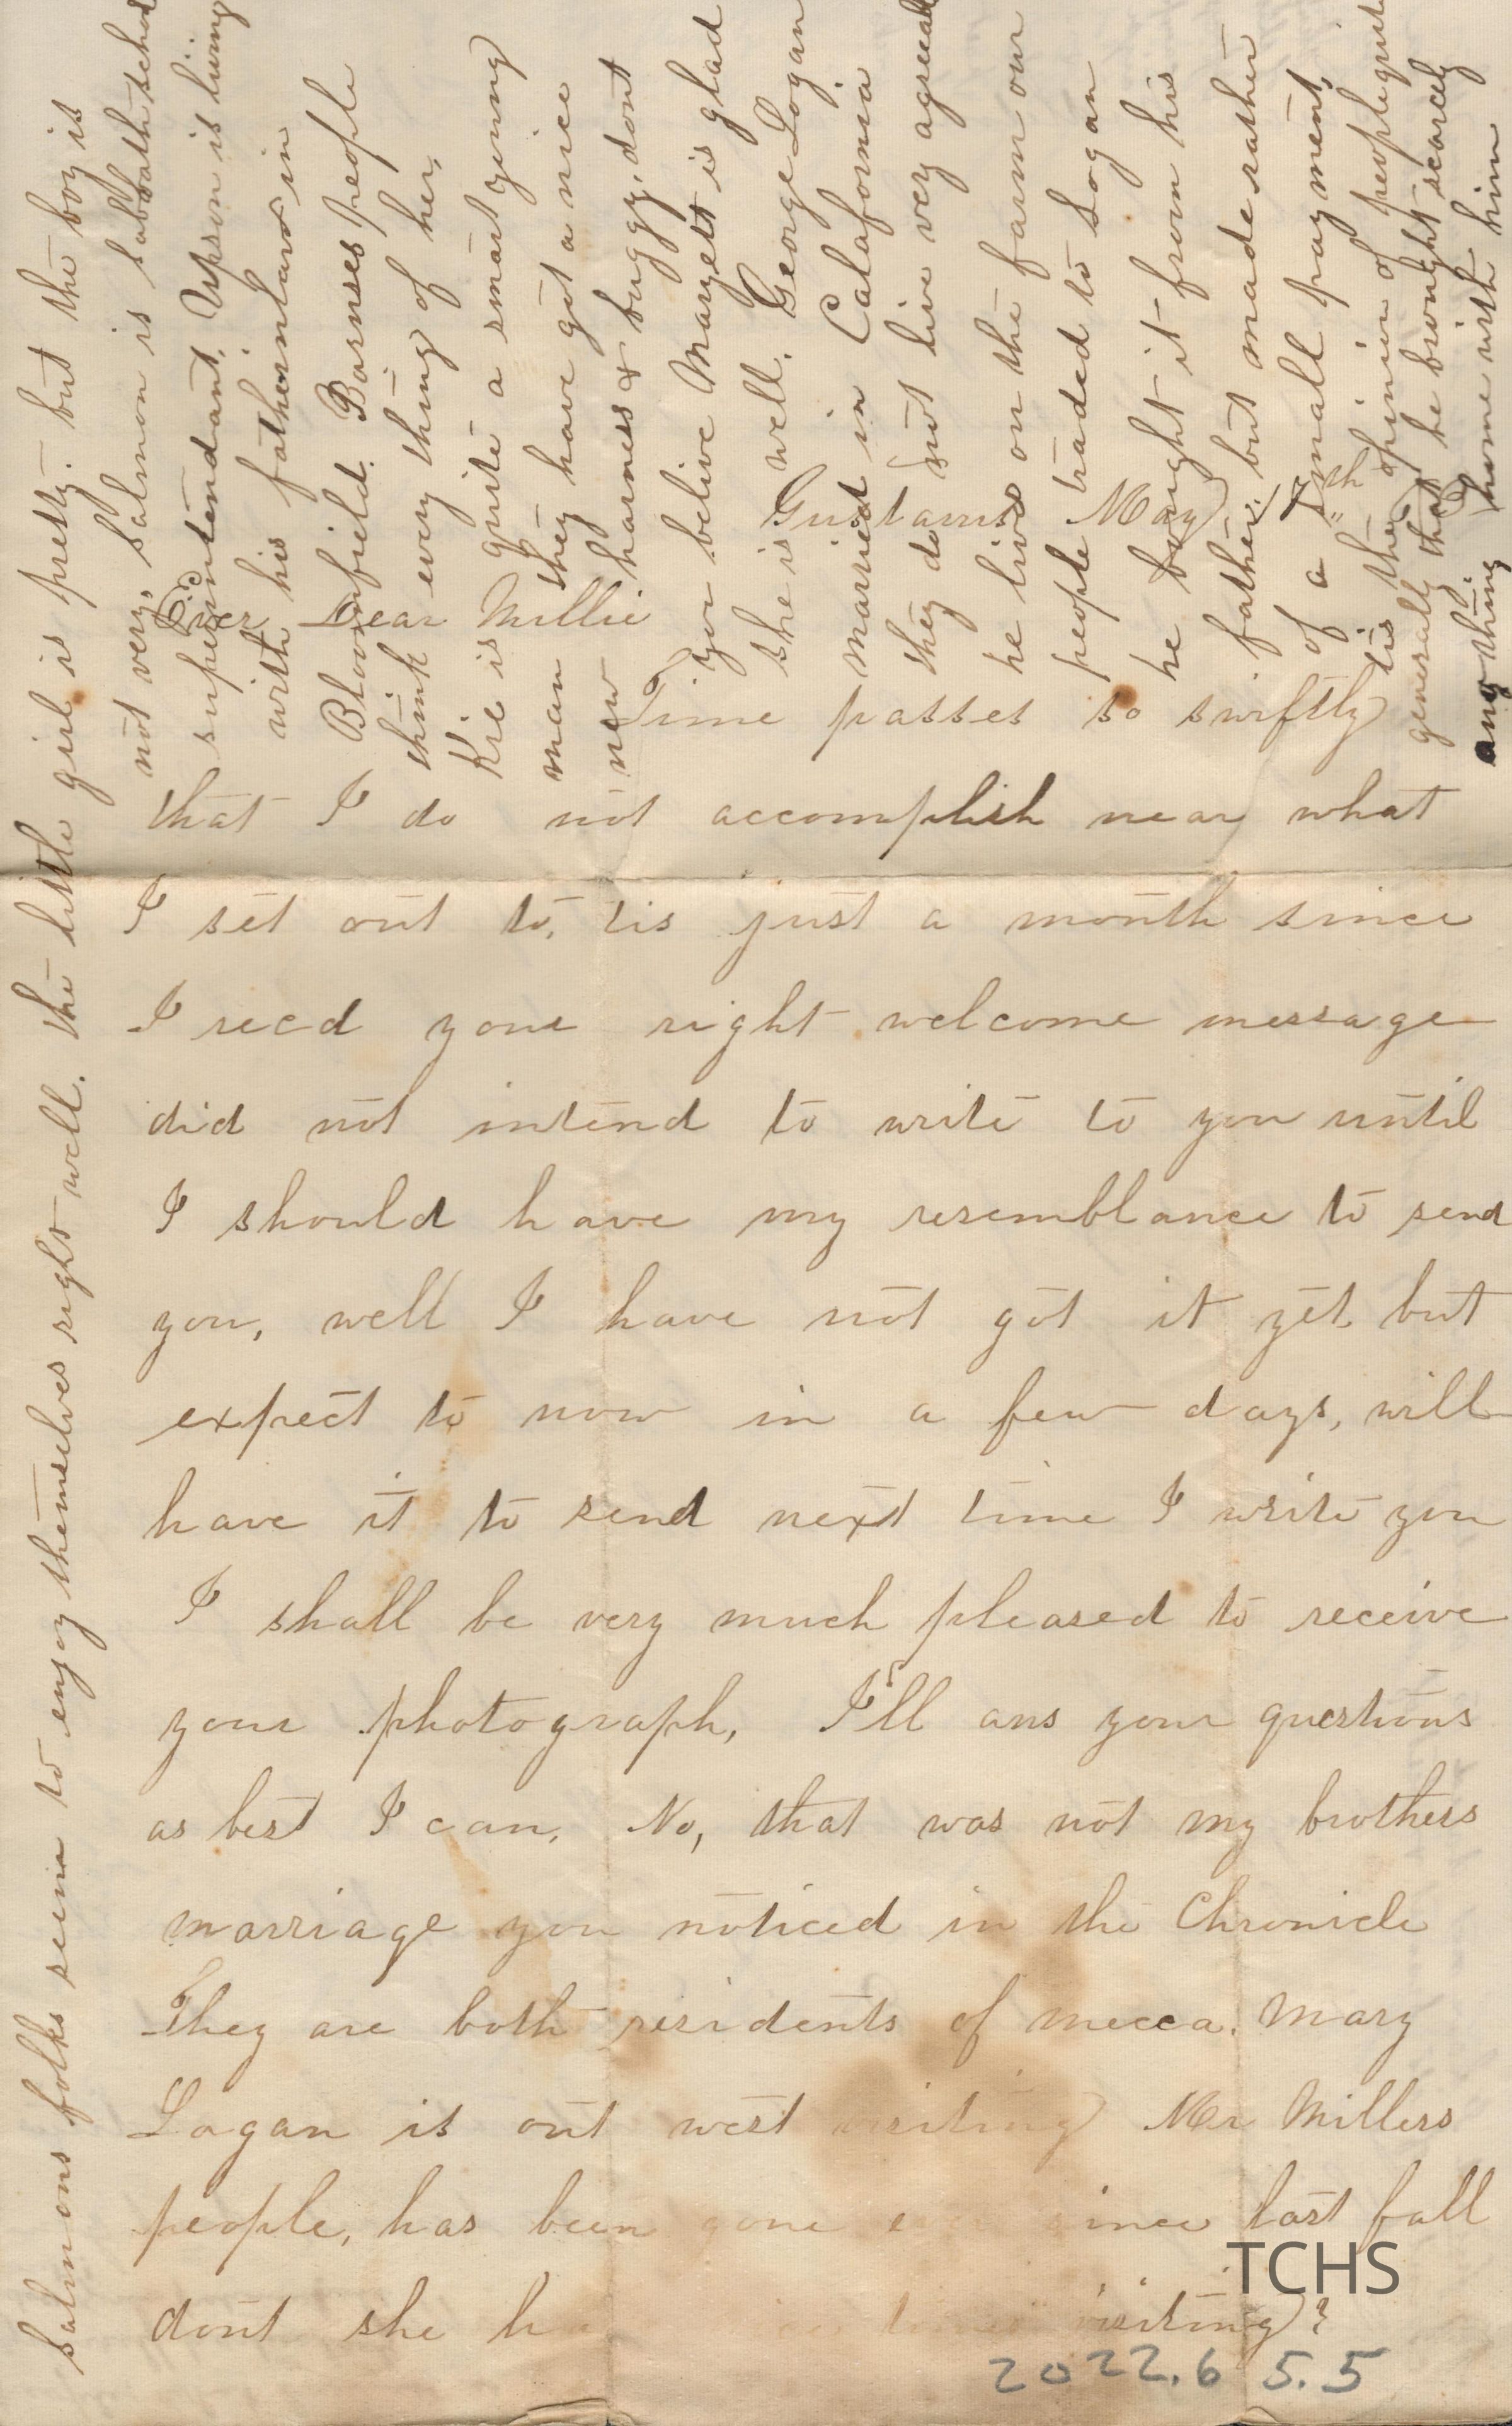 Gustavus May 7"th
Ever Dear Millie
Time passes so swiftly
that I do not accomplish near what
I set out to, tis just a month since
I recd your right welcome message
did not intend to write to you until
I should have my resemblance to send
you, well I have not got it yet but
expect to now in a few days, will
have it to send next time I write you
I shall be very much pleased to receive
your photograph, I'll ans your questions
as best I can. No, that was not my brothers
marriage you noticed in the Chronicle
They are both residents of mecca. Mary
Logan is out west visiting Mr Millers
people, has been gone ever since last fall
dont she visiting?
Salmons folks seem to enjoy themselves right well. the little girl is pretty. but the boy is
not very. Salmon is sabbath school
superintendant. Upson is living
with his fatherinlaw in
Bloomfield. Barnses people
think every thing of her,
Kie is quite a smart young
man they have got a nice
new harness & buggy, dont
you belive Margett is glad
she is well. George Logan
married in Calafornia
they do not live very agreeabl
he lives on the farm our
people traded to Logan
he bought it from his
father. but made rather
of a small payment
tis the opinion of people quite
generally that he brought scarcely
any thing home with him
TCHS
2022.6 5.5